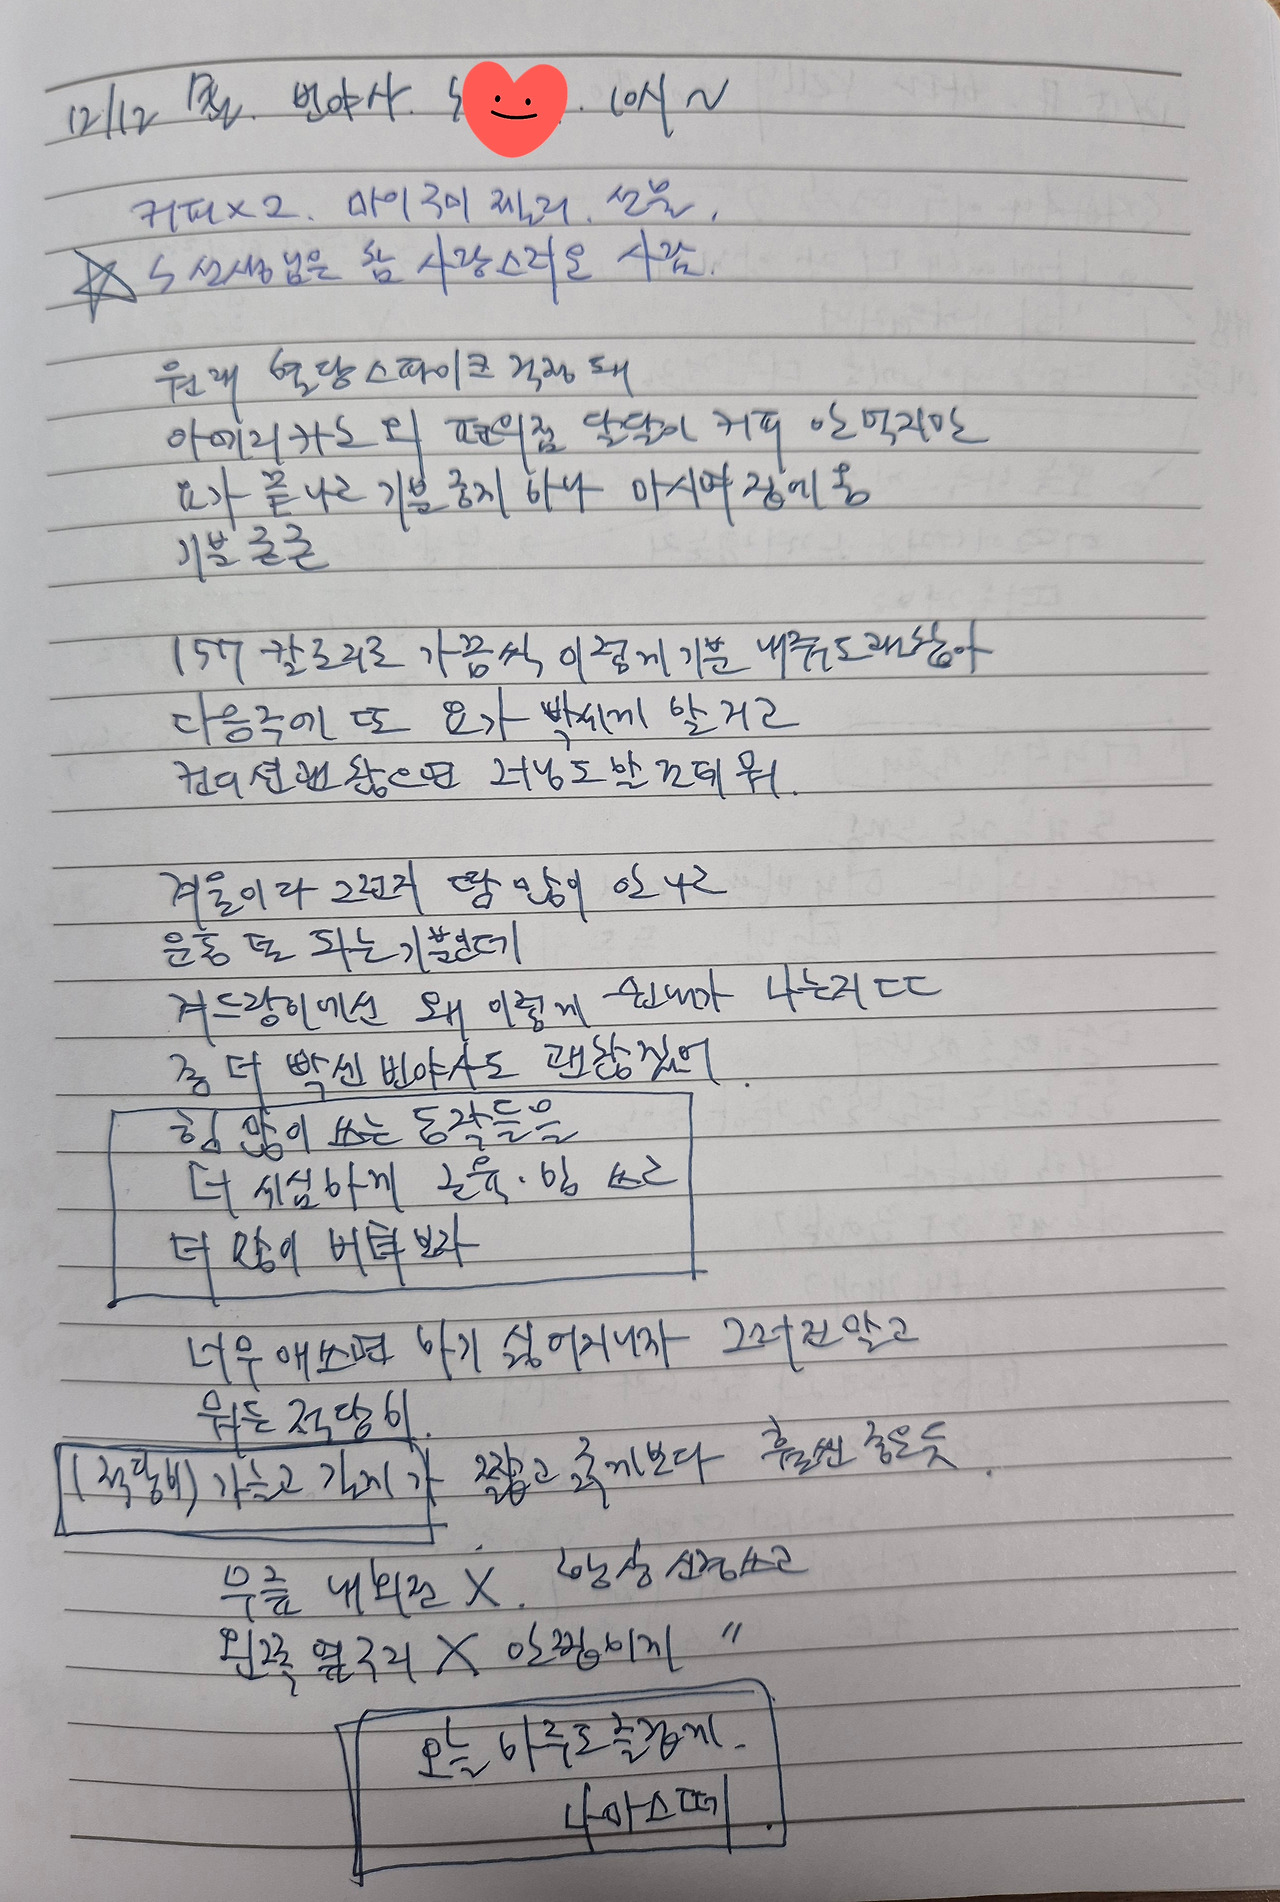 12/12 월. 빈야사. 10시~
커피x2. 마이구미 젤리. 선물.
☆ S 선생님은 참 사랑스러운 사람.
원래 혈당스파이크 걱정돼
아메리카노 외 편의점 달달이 커피 안먹지만
요가 끝나고 기분좋지 하나 마시며 집에옴
기분 굳굳
157 칼로리로 가끔씩 이렇게 기분 내줘도 괜찮아
다음주에 또 요가 빡세게 할거고
컨디션 괜찮으면 러닝도 할건데 뭐.
겨울이라 그런지 땀 많이 안나고
운동 덜 되는 기분인데
겨드랑이에선 왜 이렇게 쉰내가 나는지 ㄷㄷ
좀 더 빡센 빈야사도 괜찮겠어.
힘 많이 쓰는 동작들을
더 세심하게 근육·힘 쓰고
더 많이 버텨보자
너무 애쓰면 하기 싫어지니까 그러진말고
뭐든 적당히.
(적당히) 가늘고 길게가 짧고 굵게보다 훨씬 좋은듯.
무릎 내회전 X. 항상 신경쓰고
왼쪽 옆구리 X 안찝히게 〃
오늘 하루도 즐겁게.
나마스떼.